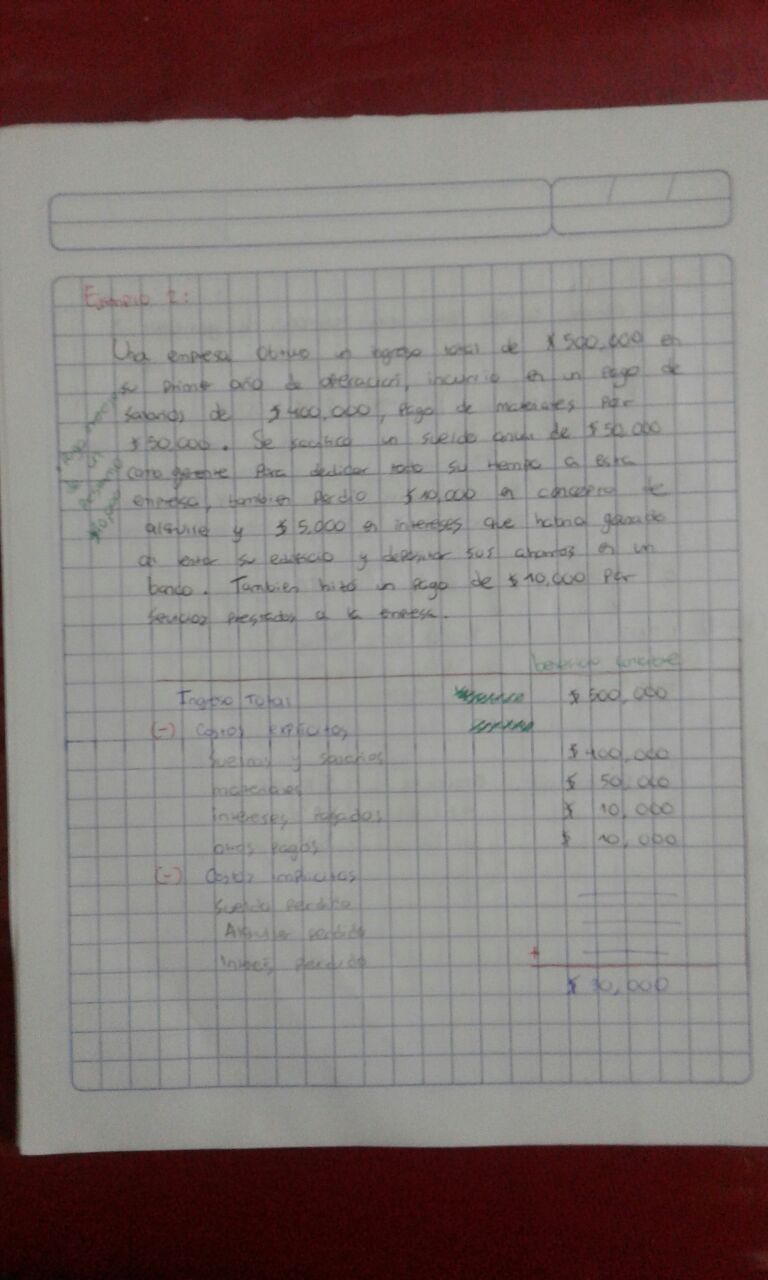 Ejemplo 1:
Una empresa obtuvo un ingreso total de $500,000 en
su primer año de operacion, incurrio en un pago de
salarios de $400,000, pago de materiales por
$50,000. Se sacrifico un sueldo anual de $50,000
como gerente para dedicar todo su tiempo a esta
empresa, tambien perdio $10,000 en concepto de
alquiler y $5,000 en intereses que habria ganado
su edificio y depositar sus ahorros en un
banco. Tambien hizo un pago de $10,000 por
servicios prestados a la empresa.
pago
de un
prestamo
$10,000
beneficio contable
Ingreso Total $500,000
(-) Costos explicitos
Sueldos y salarios $400,000
materiales $ 50,000
intereses pagados $ 10,000
otros pagos $ 10,000
(-) Costos implicitos
Sueldo perdido
Alquiler perdido
Interes perdido +
$ 30,000